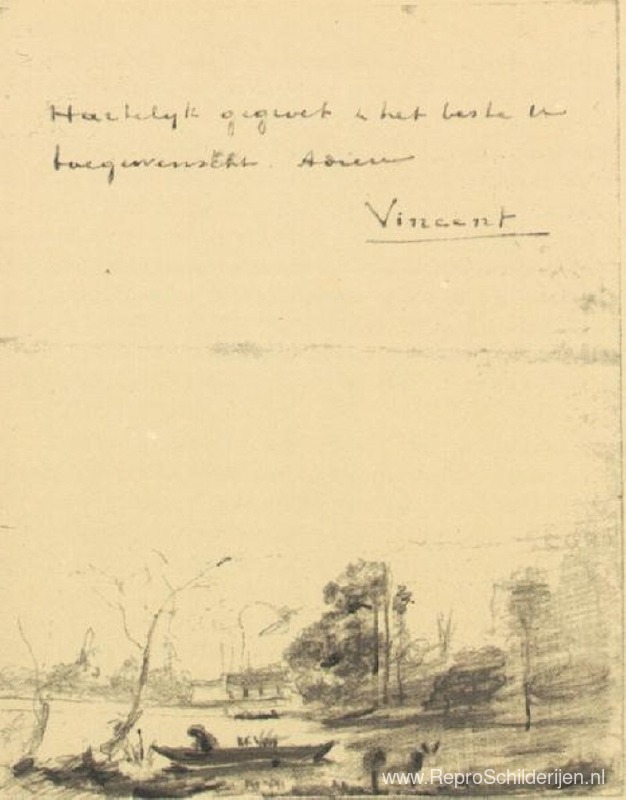 Hartelyk gegroet & het beste U
toegewenscht. Adieu
Vincent
www.ReproSchilderijen.nl